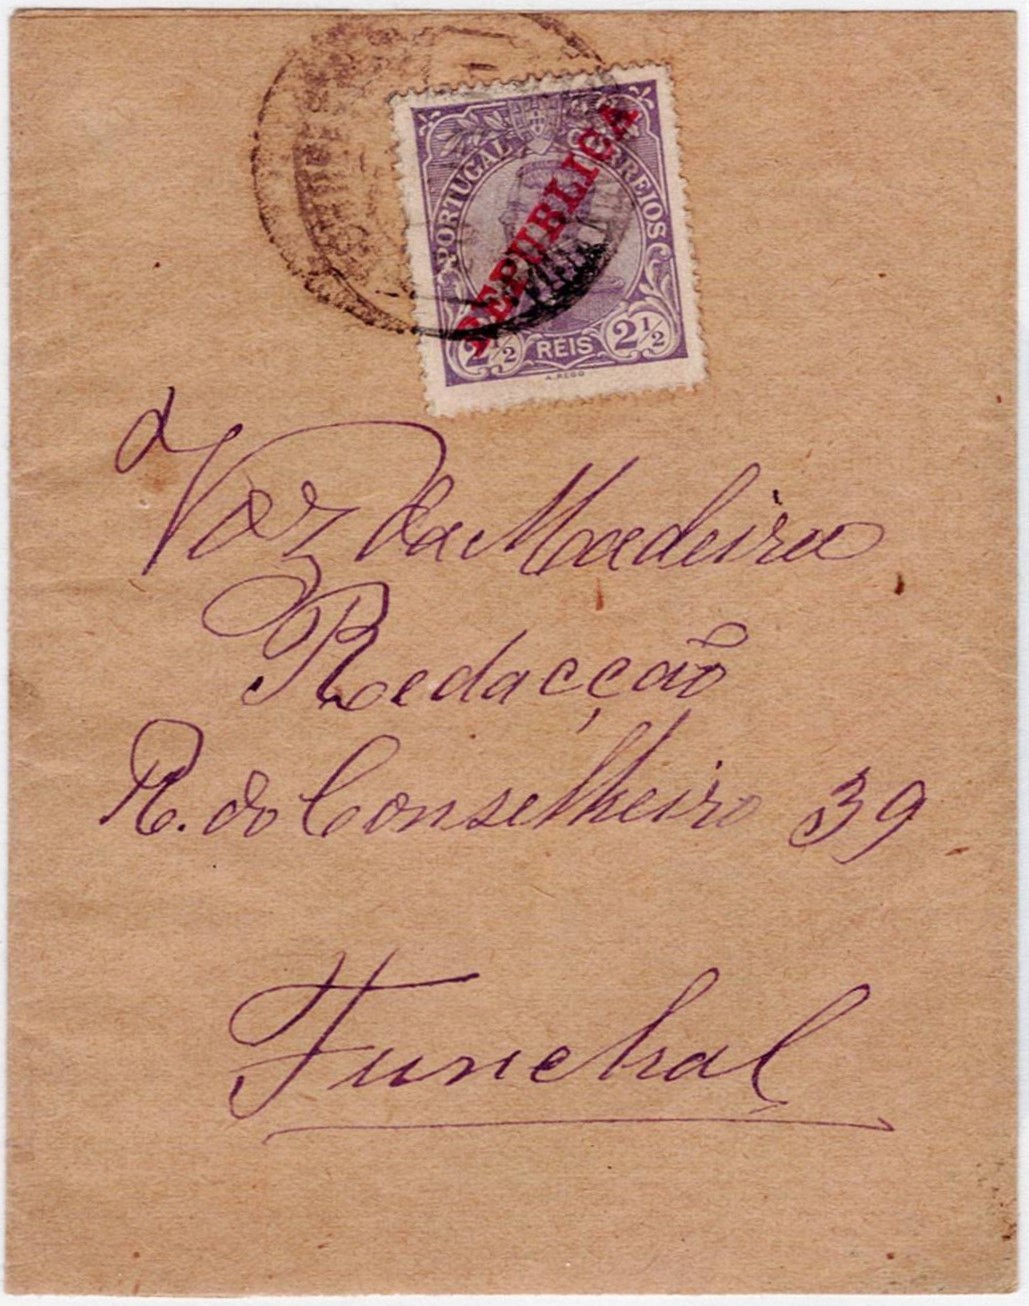 PORTUGAL CORREIOS
REPUBLICA
2 1/2 REIS 2 1/2
A
Voz da Madeira
Redacção
R. do Conselheiro 39
Funchal